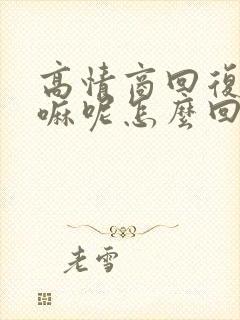 高情商回復
嘛呢怎麼回
老雪